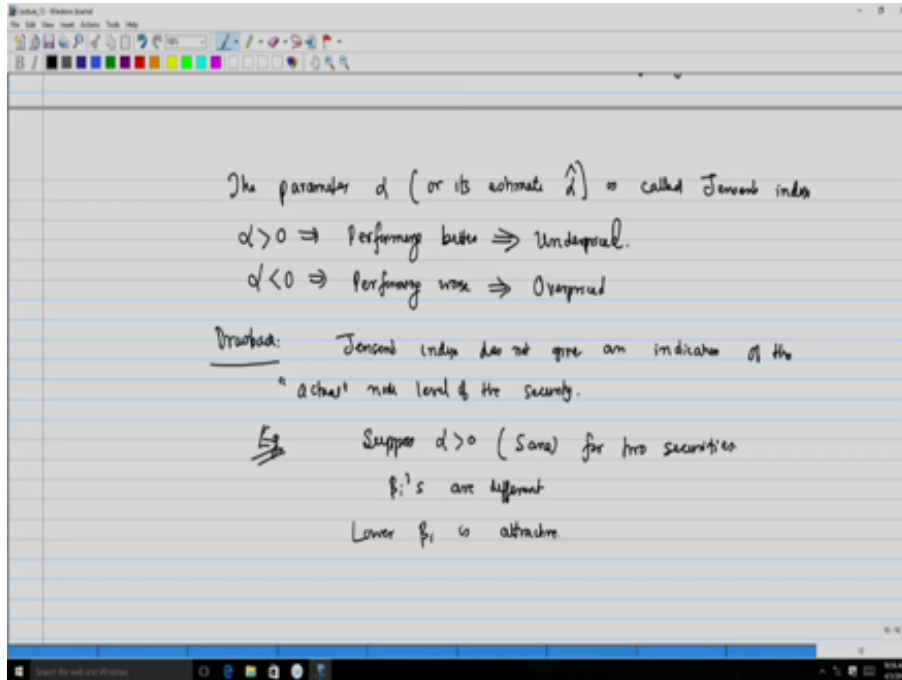 Lecture_12 - Windows Journal
File Edit View Insert Actions Tools Help
B I
The parameter α (or its estimate α̂) is called Jensen's index
α>0 ⇒ Performing better ⇒ Underpriced.
α<0 ⇒ Performing worse ⇒ Overpriced
Drawback: Jensen's index does not give an indication of the
"actual" risk level of the security.
Eg Suppose α>0 (Same) for two securities
βi's are different
Lower βi is attractive
Search the web and Windows